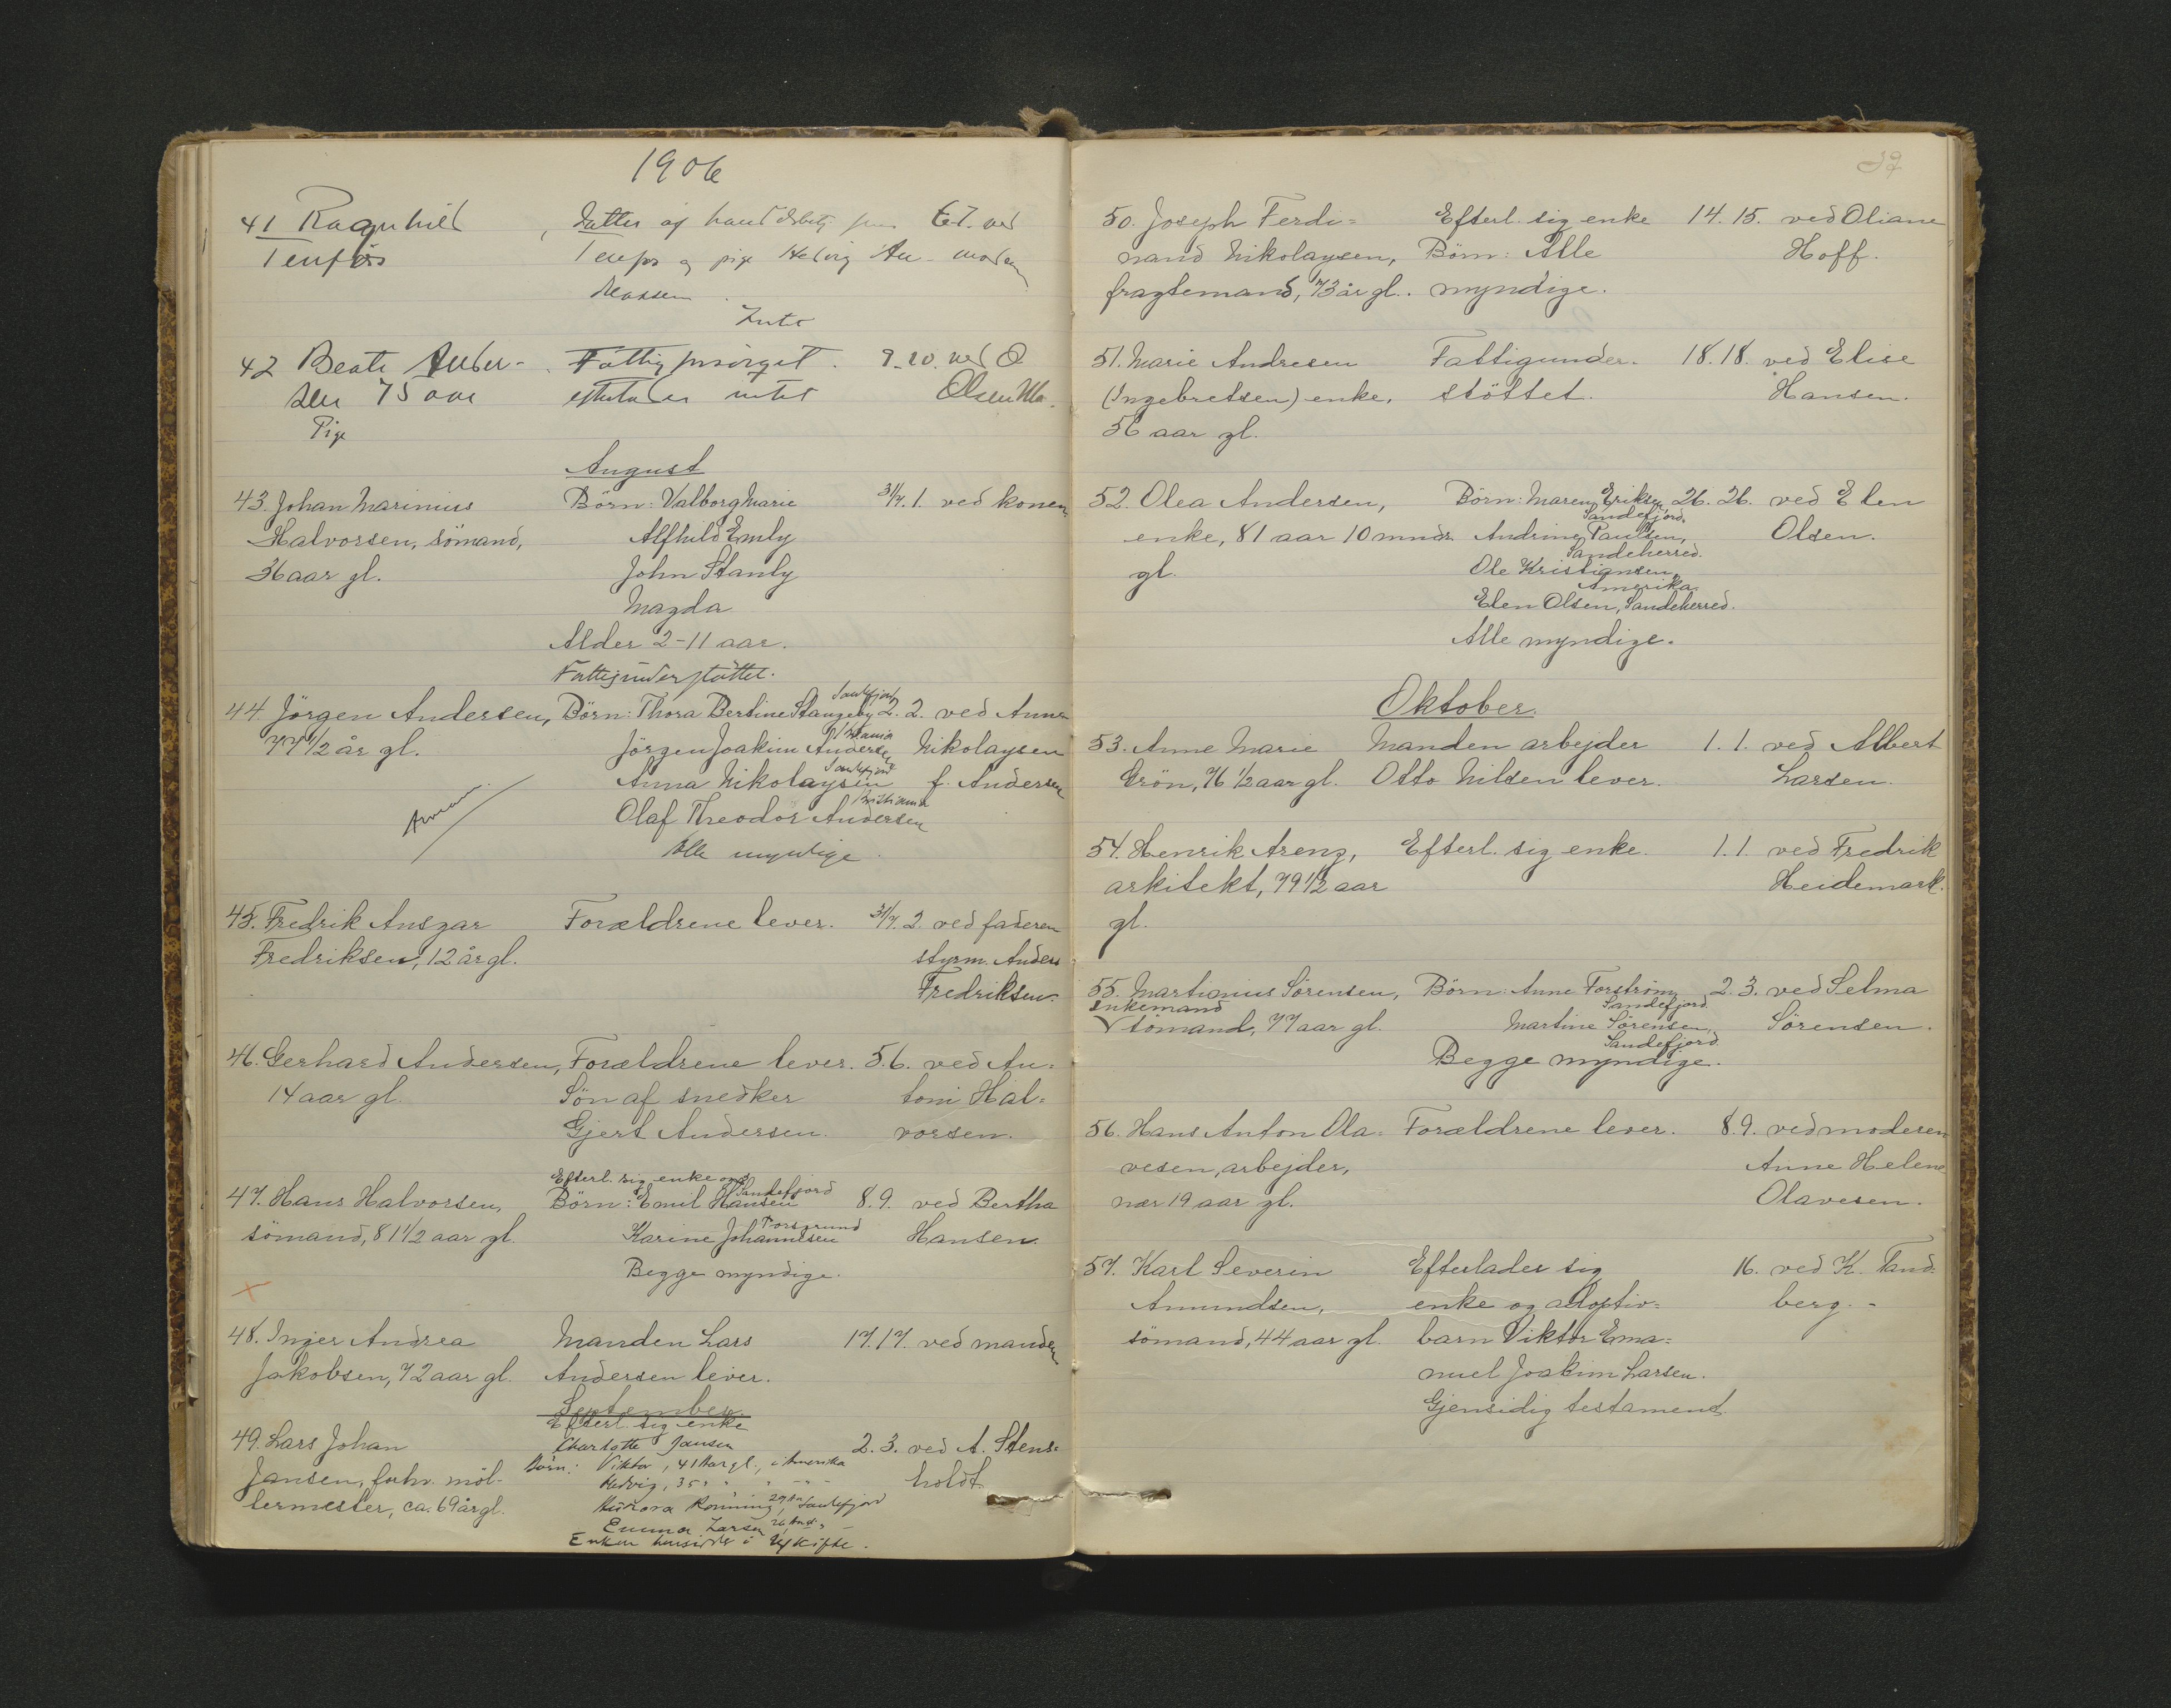 1906
41 Ragnhild
Tenfjos
datter af
og pige Hedvig An-
6-7. ved
moderen
Intet
42 Beate Ander-
sen 75 aar
Pige
Fattigforsørget.
efterlader intet
9-10. ved O
Olsen
August
43. Johan Marinius
Halvorsen, sömand,
36 aar gl.
Börn: Valborg Marie
Alfhild Emly
John Stanly
Magda
Alder 2-11 aar.
Fattigunderstöttet.
31/7. 1. ved konen
44. Jörgen Andersen,
77 1/2 år gl.
Börn: Thora Bertine Stangeby Sandefjord
Jörgen Joakim Andersen Kristiania
Anna Nikolaysen Sandefjord
Olaf Theodor Andersen Kristiania
Alle myndige.
2. 2. ved Anna
Nikolaysen
f. Andersen
45. Fredrik Ansgar
Fredriksen, 12 år gl.
Forældrene lever.
31/7. 2. ved faderen
styrm. Anders
Fredriksen.
46. Gerhard Andersen,
14 aar gl.
Forældrene lever.
Sön af snedker
Gjert Andersen.
5. 6. ved An=
toni Hal=
vorsen.
47. Hans Halvorsen,
sömand, 81 1/2 aar gl.
Efterl. sig enke og
Börn: Emil Hansen Sandefjord
Karine Johannesen Porsgrund
Begge myndige.
8. 9. ved Bertha
Hansen.
48. Inger Andrea
Jakobsen, 72 aar gl.
Manden Lars
Andersen lever.
17. 17. ved manden
September
49. Lars Johan
Jansen, forhv. möl-
lermester, ca. 69 år gl.
Efterl. sig enke
Charlotte Jansen
Börn: Viktor, 41 aar gl., i Amerika
Hedvig, 35 " " " - " -
Ronning, 29 Aar, Sandefjord
Emma Larsen 26 Aar " -
Enken hensidder i Uskifte.
2. 3. ved A. Stens=
holdt
50. Joseph Ferdi=
nand Nikolaysen,
fragtemand, 73 år gl.
Efterl. sig enke
Börn: Alle
myndige.
14. 15. ved Oliane
Hoff.
51. Marie Andresen
(Ingebretsen) enke,
56 aar gl.
Fattigunder-
stöttet.
18. 18. ved Elise
Hansen.
52. Olea Andersen,
enke, 81 aar 10 mndr
gl.
Börn: Maren Eriksen,
Sandefjord.
Andrine Paulsen,
Sandeherred.
Ole Kristiansen,
Amerika.
Elen Olsen, Sandeherred.
Alle myndige.
26. 26. ved Elen
Olsen.
Oktober.
53. Anne Marie
Grön, 76 1/2 aar gl.
Manden arbejder
Otto Nilsen lever.
1. 1. ved Albert
Larsen.
54. Henrik Areng,
arkitekt, 79 1/2 aar
gl.
Efterl. sig enke.
1. 1. ved Fredrik
Heidemark.
55. Martinius Sörensen,
Enkemand
√ sömand, 77 aar gl.
Börn: Anne Forström,
Sandefjord.
Martine Sörensen,
Sandefjord.
Begge myndige.
2. 3. ved Selma
Sörensen.
56. Hans Anton Ola=
vesen, arbejder,
nær 19 aar gl.
Forældrene lever.
8. 9. ved moderen
Anne Helene
Olavesen.
57. Karl Severin
Amundsen,
sömand, 44 aar gl.
Efterlader sig
enke og adoptiv=
barn Viktor Ema=
nuel Joakim Larsen.
Gjensidig testament.
16. ved K. Tand=
berg. -